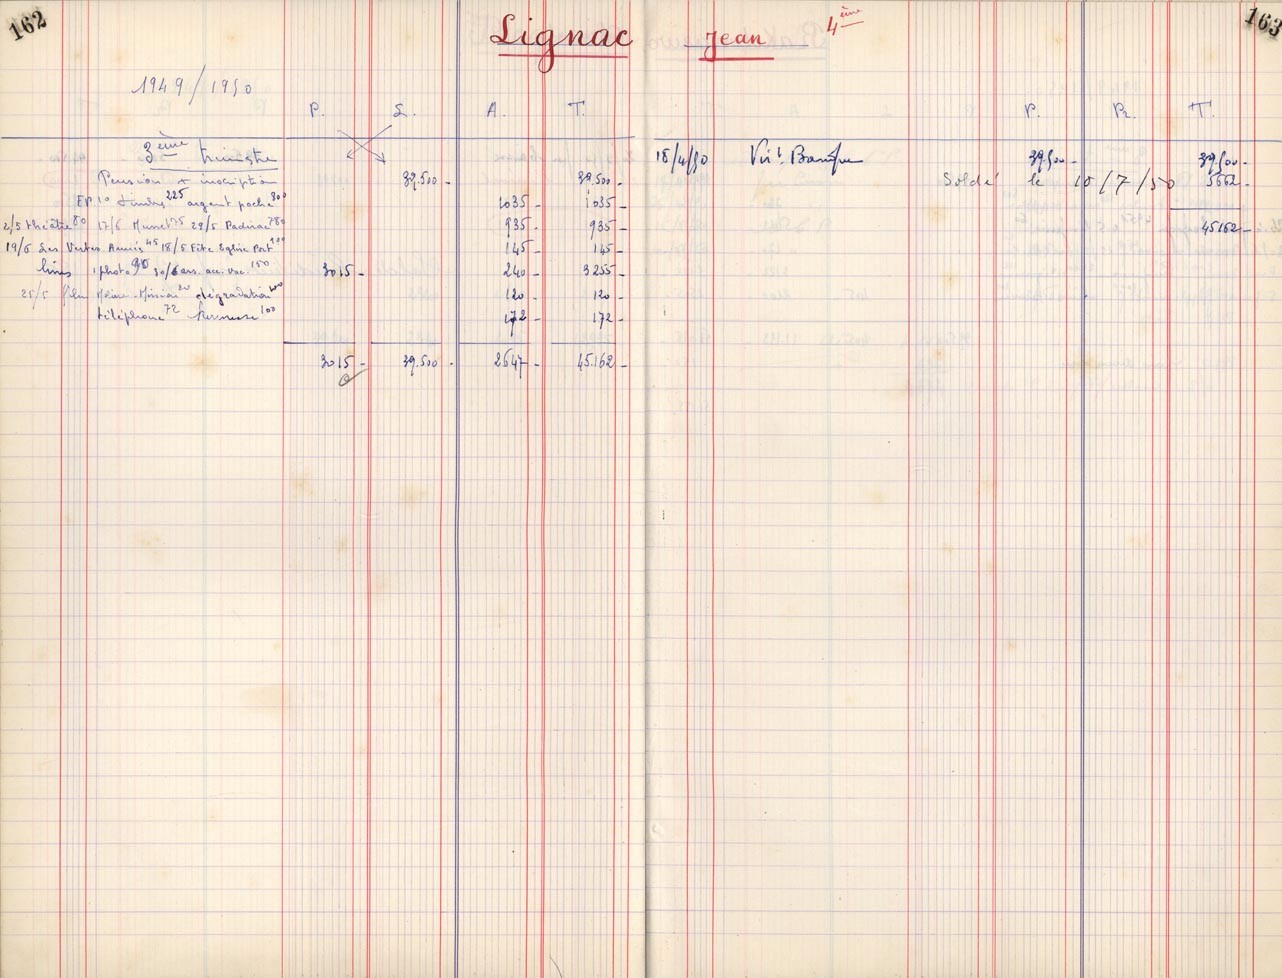 162
Lignac Jean 4ème
163
1949/1950
P. L. A. T.
P. Pr. T.
3ème trimestre
Pension + inscription 39.500 - 39.500 -
EP 10 timbres 225 argent poche 800 1035 - 1035 -
2/5 théâtre 80 17/6 Musset 75 29/5 Padirac 780 935 - 935 -
19/6 Les Vertes Années 45 18/5 Fête Eglise Port 100 145 - 145 -
livres 1 photo 90 30/6 ass. acc. vac. 150 3015 - 240 - 3255 -
25/5 film 20 dégradation 100 120 - 120 -
téléphone 72 Kermesse 100 172 - 172 -
3015 - 39.500 - 2647 - 45.162 -
18/4/50 Virt Banque 39.500 - 39.500 -
Soldé le 10/7/50 5662 -
45162 -